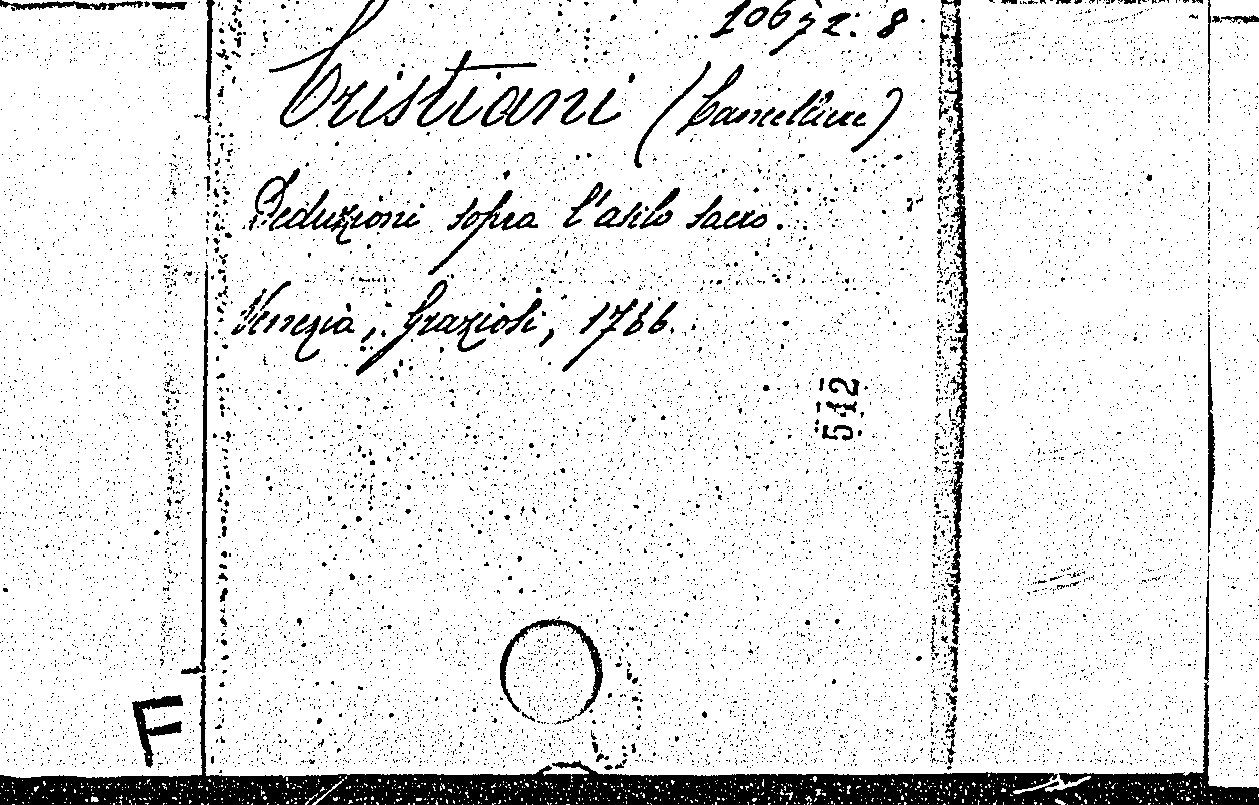 106 72. 8
Cristiani (Cancelliere)
Deduzioni sopra l'asilo sacro.
Venezia, Graziosi, 1766.
542
F